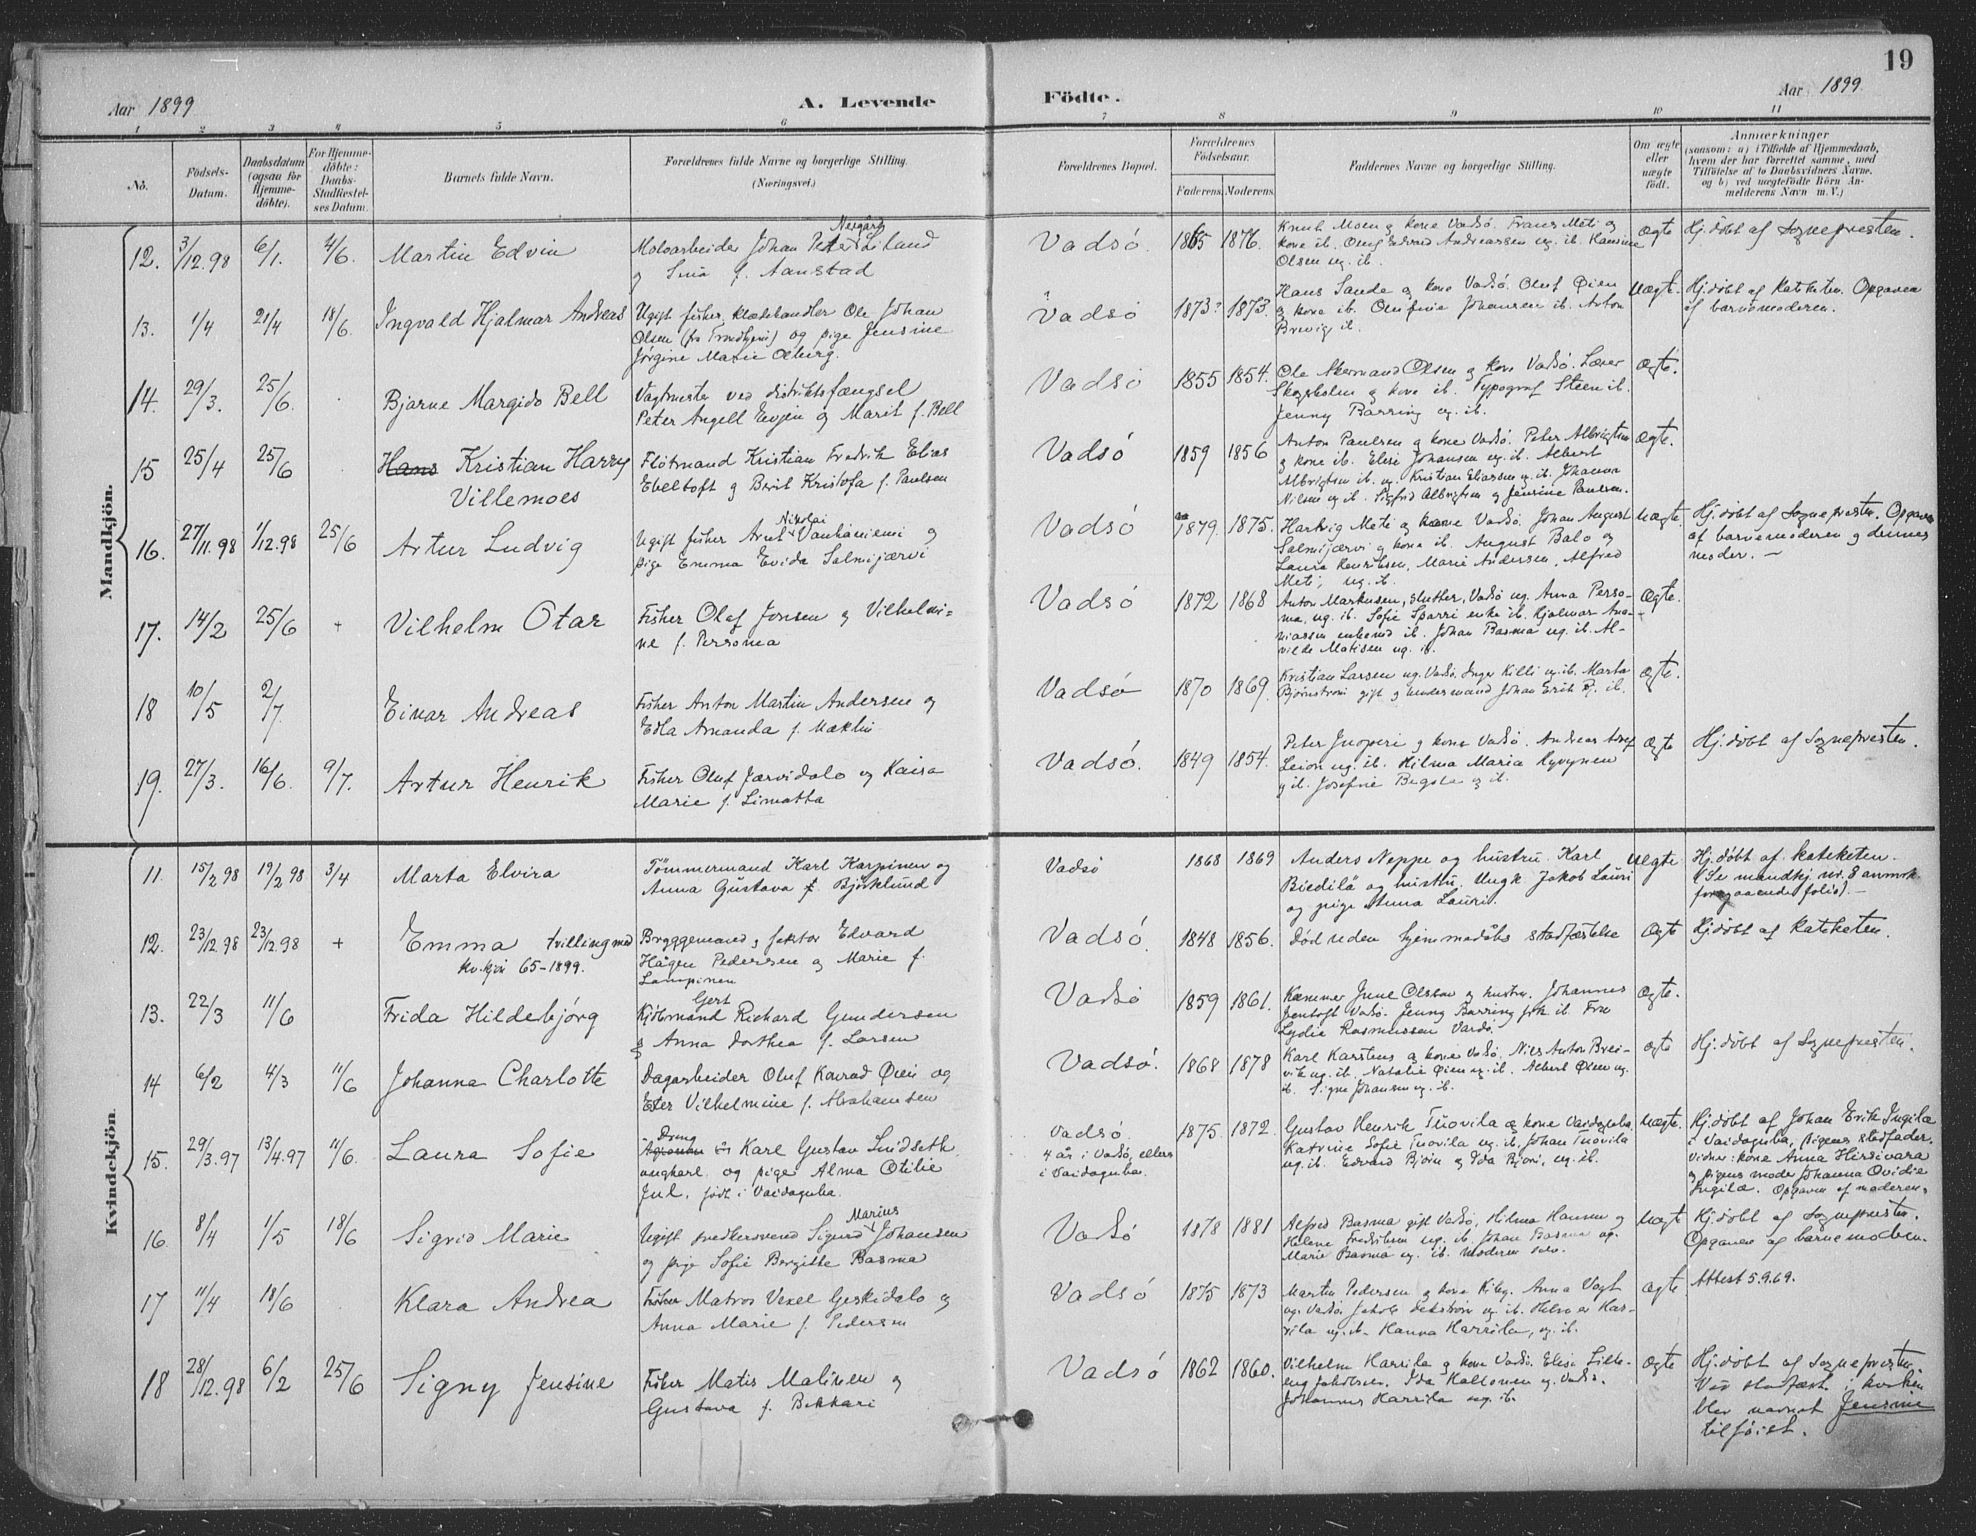 19
Aar 1899
A. Levende
Födte.
Aar 1899
1 2 3 4 5 6 7 8 9 10 11
No.
Födsels-
Datum.
Daabsdatum
(ogsaa for
Hjemme-
döbte).
For Hjemme-
döbte:
Daabs-
Stadfæstel-
ses Datum.
Barnets fulde Navn.
Forældrenes fulde Navne og borgerlige Stilling.
(Næringsvei.)
Forældrenes Bopæl.
Forældrenes
Födselsaar.
Faderens. Moderens.
Faddernes Navne og borgerlige Stilling.
Om ægte
eller
uægte
födt.
Anmærkninger
(saasom: a) i Tilfælde af Hjemmedaab,
hvem der har forrettet samme, med
Tilföielse af to Daabsvidners Navne.
og b) ved uægtefödte Börn An-
melderens Navn m. V.)
Mandkjön.
12. 3/12.98 6/1. 4/6. Martin Edvin
Moloarbeider Johan Peter Nergård
og Lina f. Aanstad
Vadsö. 1865 1876.
Knut Moen og kone Vadsö. Frans Meti og
Olsen ug. ib.
ægte
Hj. döbt af Sognepresten.
13. 1/4 21/4 18/6. Ingvald Hjalmar Andreas
Ugift fisker, klædehandler Ole Johan
Olsen (fra Trondhjem) og pige Jensine
Jörgine Marie
Vadsö 1873? 1873.
Hans Sande og kone Vadsö. Oluf Öien
og kone ib. Olufine Johansen ib. Anton
Brevig ib.
Uægte.
Hj. döbt af Kateketen. Opgaven
af barnemoderen.
14. 29/3. 25/6. Bjarne Margido Bell
Vagtmester ved distriktsfængsel
Peter Angell Evjen og Marit f. Bell
Vadsö 1855 1854.
Ole Normand Olsen og kone Vadsö. Lærer
og kone ib. Typograf Steen ib.
Jenny Barring ug. ib.
ægte.
15 25/4 25/6 Hans Kristian Harry
Villemoes
Flötmand Kristian Fredrik Elias
Ebeltoft og Berit Kristofa f. Paulsen
Vadsö 1859 1856
Anton Paulsen og kone Vadsö. Peter Albrigtsen
og kone ib. Elise Johansen ug. ib. Albert
Albrigtsen ib. ug. Kristian Eliassen ug. ib. Johanna
Nilsen ug. ib. Sigfrid Albrigtsen og Jensine Paulsen.
Ægte.
16. 27/11.98 1/12.98 25/6 Artur Ludvig
Ugift fisker Arvid Nikolai Vanhaniemi og
pige Emma Evida Salmijærvi
Vadsö 1879. 1875.
Hartvig Meti og kone Vadsö. Johan August
Salmijærvi og kone ib. August Balo og
Laura Henriksen, Marie Andersen, Alfred
Meti, ug. ib.
Uægte.
Hj. döbt af Sognepresten. Opgaven
af barnemoderen og dennes
moder. —
17. 14/2 25/6 + Vilhelm Otar
Fisker Olaf Jonsen og Vilhelmi-
ne f. Persoma
Vadsö 1872 1868
Anton Markusen, slutter, Vadsö ug. Anna Perso-
ma, ug. ib. Sofie Sparri enke ib. Hjalmar Ana-
niassen enkemd ib. Johan Basma ug. ib. Al-
vilde Matisen ug. ib.
Ægte.
18 10/5 2/7. Einar Andreas
Fisker Anton Martin Andersen og
Edla Amanda f. Mæklin
Vadsö 1870 1869.
Kristian Larsen ug. Vadsö. Inger Killi ug. ib. Marta
Björnström gift og Johan Erik ib.
ægte.
19. 27/3. 16/6. 9/7. Artur Henrik
Fisker Oluf Jærvidalo og Kaisa
Marie f. Limatta
Vadsö. 1849 1854.
Peter Juoperi og kone Vadsö. Andreas
Leion ug. ib. Hilma Maria Kyvynen
ug ib. Josefine Begsta ug ib.
Ægte
Hj. döbt af Sognepresten.
Kvindekjön.
11. 15/2 98 19/2 98 3/4 Marta Elvira
Tömmermand Karl Karpinen og
Anna Gustava f. Björklund
Vadsö 1868 1869
Anders Neppe og hustru. Karl
Biedilä og hustru. Ungk. Jakob Lauri
og pige Anna Lauri.
Uegte
Hj. döbt af kateketen.
(Se mandkj. nr. 8 anmrk.
foregaaende folio). —
12. 23/12.98 23/12.98 + Emma tvilling med
kv.kjön 65-1899.
Bryggemand, faktor Edvard
Hågen Pedersen og Marie f.
Lampinen
Vadsö. 1848 1856.
Död uden hjemmedåbs stadfæstelse
Ægte
Hj. döbt af Kateketen.
13. 22/3 11/6 Frida Hildebjörg
Kjöbmand Richard Gert Gundersen
og Anna Dorthea f. Larsen
Vadsö 1859 1861.
Kæmner June Olsen og hustru. Johannes
Jentoft Vadsö. Jenny Barring frk. ib. Fru
Lydia Rasmussen Vardö.
ægte.
14 6/2 4/3 11/6 Johanna Charlotte
Dagarbeider Oluf Konrad Öien og
Ester Vilhelmine f. Abrahamsen
Vadsö. 1868 1878
Karl Karstens og kone Vadsö. Nils Anton Brei-
vik ug. ib. Natalie Öien ug. ib. Albert Öien ug.
ib. Signe Johansen ug. ib.
ægte
Hj. döbt af Sognepresten.
15. 29/3.97 13/4.97 11/6. Laura Sofie
Dreng Karl Gustav Lindseth
ungkarl og pige Alma Otilie
Jul, född i Vaidaguba.
Vadsö
4 år i Vadsö, ellers
i Vaidaguba.
1875 1872.
Gustav Henrik Tuovila og kone Vaidaguba,
Katrine Sofie Tuovila ug. ib. Johan Tuovila
ug. ib. Edvard Björn og Ida Björn, ug. ib.
Uægte.
Hj. döbt af Johan Erik Ingilæ
i Vaidaguba, pigens stedfader.
Vidner: kone Anna Hirsivara
og pigens mode Johanna Ovidie
Ingilæ. Opgaven af moderen.
16 8/4 1/5 18/6 Sigrid Marie
Ugift snedkersvend Sigurd Marius Johansen
og pige Sofie Bergitte Basma
Vadsö 1878 1881
Alfred Basma gift Vadsö, Hilma Hansen og
Helene Fredriksen ug. ib. Johan Basma og
Marie Basma ug. ib. moderen selv.
Uægte
Hj. döbt af Sognepresten.
Opgaven af barnemoderen.
17 11/4 18/6 Klara Andrea
Fisker Matros Vexel Geskidalo og
Anna Marie f. Pedersen
Vadsö 1875 1873
Martin Pedersen og kone Kiby. Anna Vogt
ug. Vadsö. Jakob Sekström ug. ib. Helmer Har-
rila ug. ib. Hanna Harrila, ug. ib.
ægte
Attest 5.9.69.
18 28/12.98 6/2 25/6 Signy Jensine
Fisker Matis Malinen og
Gustava f. Bekkari
Vadsö 1862 1860.
Vilhelm Harrila og kone Vadsö. Elise Lille-
eng Jakobsen. Ida Kaltonen ug. Vadsö.
Johannes Harrila ug. ib.
Ægte
Hj. döbt af Sognepresten.
Ved stadfæst. i kirken
blev navnet Jensine
tilföiet.